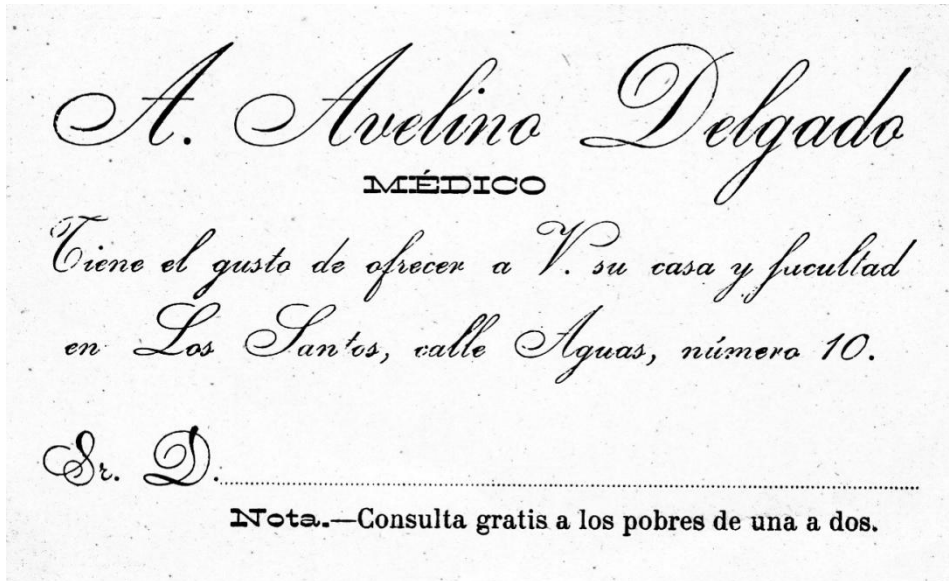 A. Avelino Delgado
MÉDICO
Tiene el gusto de ofrecer a V. su casa y facultad
en Los Santos, calle Aguas, número 10.
Sr. D.
Nota.—Consulta gratis a los pobres de una a dos.